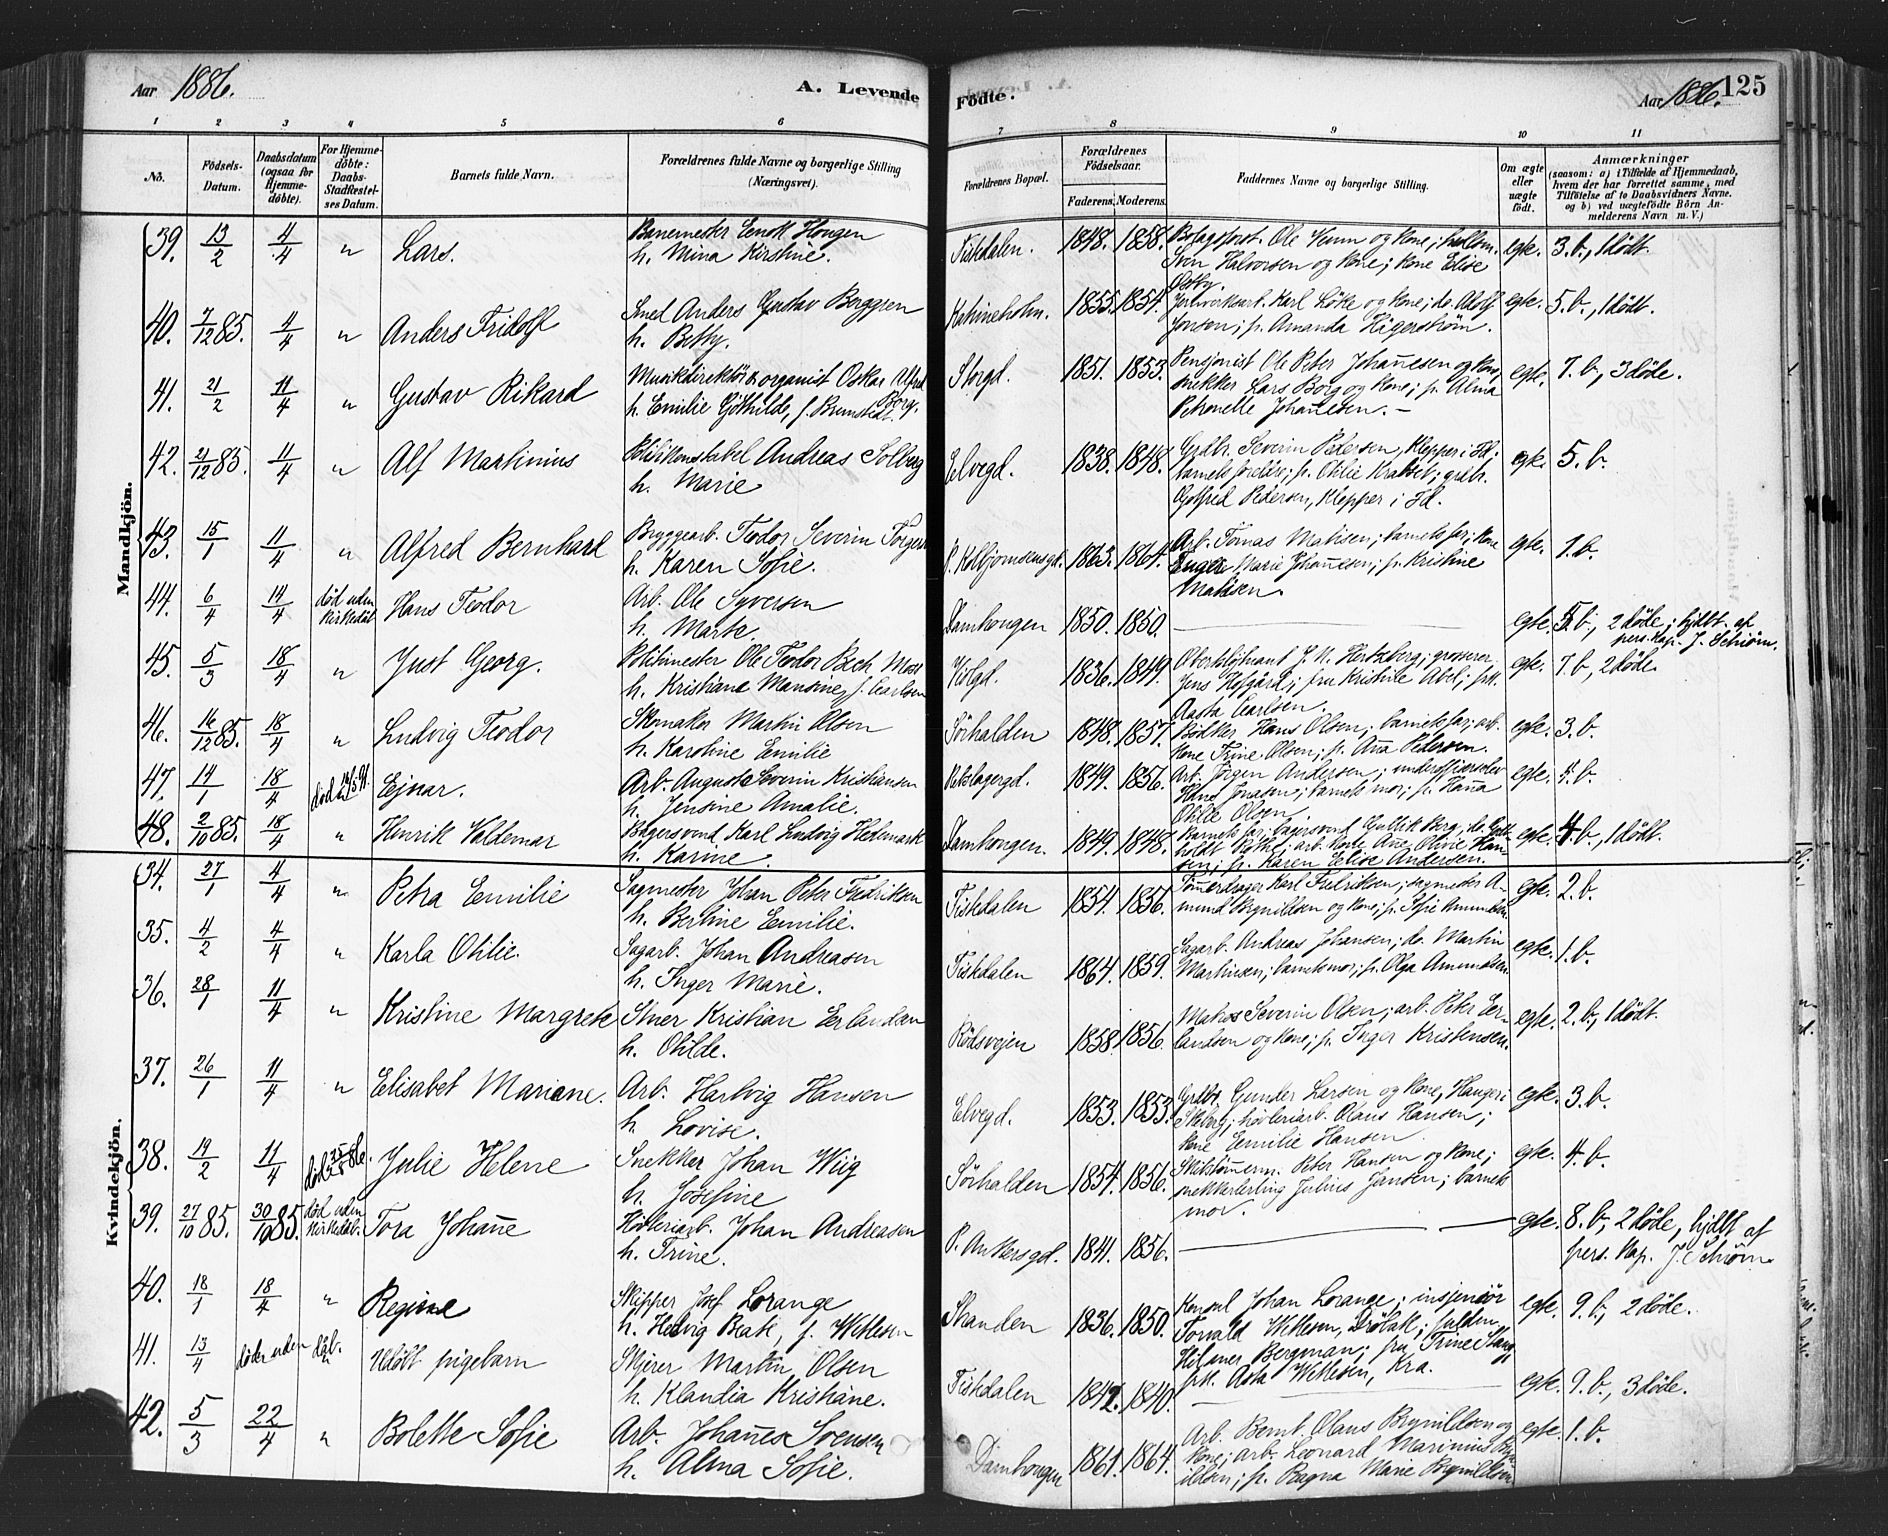 Aar 1886. A. Levende Födte. Aar 1886. 125
1 2 3 4 5 6 7 8 9 10 11
No. Födsels-Datum. Daabsdatum (ogsaa for Hjemmedöbte). For Hjemmedöbte: Daabs-Stadfæstelses Datum. Barnets fulde Navn. Forældrenes fulde Navne og borgerlige Stilling (Næringsvei). Forældrenes Bopæl. Forældrenes Födselsaar. Faderens. Moderens. Faddernes Navne og borgerlige Stilling. Om ægte eller uægte födt. Anmærkninger (saasom: a) i Tilfælde af Hjemmedaab, hvem der har forrettet samme, med Tilföielse af to Daabsvidners Navne. og b) ved uægtefödte Börn Anmelderens Navn m. V.)
Mandkjön.
39. 13/2 4/4 " Lars. Banemester Enok Hougen
h. Mina Kirstine. Tistedalen. 1848. 1858. Ole Venn og kone;
Sven Halvorsen og kone; kone Elise
Østby. egte. 3. b., 1 dödt.
40. 7/12 85. 4/4 " Anders Fridolf Smed Anders Gustav Berggren
h. Betty. Katrineholm. 1855. 1854. Karl Löke og kone; do. Adolf
Jonsen; p. Amanda Higerström. egte. 5. b., 1 dödt.
41. 21/2 11/4 " Gustav Rikard Musikdirektör & organist Oskar Alfred Borg.
h. Emilie Gothilde, f. Brunstedt. Storgd. 1851. 1853. Pensjonist Ole Peter Johannesen og kone,
snekker Lars Borg og kone; p. Alma
Petronelle Johannesen. egte. 7. b., 3 döde.
42. 21/12 85. 11/4 " Alf Martinius Politikonstabel Andreas Solberg
h. Marie Elvegd. 1838. 1848. Grdbr. Severin Pedersen, Klepper i Id;
barnets foreldre; p. Otilie; grdbr.
Pedersen, Klepper i Id. egte. 5. b.
43. 15/1 11/4 " Alfred Bernhard Bryggearb. Teodor Severin Torgersen
h. Karen Sofie. P. Kolbjørnsensgd. 1863. 1864. Arb. Tomas Matisen; barnets far; kone
Marie Johannesen; p. Kristine
Matisen. egte. 1. b.
44. 6/4 14/4 död uden kirkedåb Hans Teodor Arb. Ole Syversen
h. Marte. Damhougen 1850. 1850. egte. 5. b., 2 döde; hjdbt. af
pers. kap. J. Schiörn.
45. 5/3 18/4 " Just Georg. Politimester Ole Teodor Bech Moss
h. Kristiane Mansine, f. Carlsen Violgd. 1836. 1849. Oberstlöjtnant J. N. Hertzberg; grosserer
Jens Hofgård; fru Kristine Abel; frk.
Aasta Carlsen. egte. 7. b., 2 döde.
46. 16/12 85. 18/4 " Ludvig Teodor Skomaker Martin Olsen
h. Karoline Emilie Sörhalden 1848. 1857. Bödker Hans Olsen; barnets far; arb.
kone Trine Olsen; p. Ana Pedersen. egte. 3. b.
47. 14/1 18/4 död Ejnar. Arb. August Severin Kristiansen
h. Jensine Amalie. Rebslagergd. 1849. 1856. Arb. Jörgen Andersen;
Hans Jonasen; barnets mor; p. Hana
Otilie Olsen. egte. 4. b.
48. 2/10 85. 18/4 " Henrik Valdemar Bagersvend Karl Ludvig Hedemark
h. Karine. Damhougen. 1849. 1848. Barnets far; bagersvend Gullik Berg;
arb. kone Ane Olivie Hansen; p. Karen Elise Andersen. egte. 4. b., 1 dödt.
Kvindekjön.
34. 27/1 4/4 " Petra Emilie Sagmester Johan Peter Fredriksen
h. Bertine Emilie. Tistedalen 1854. 1856. Tömerdrager Karl Fredriksen; sagmester A-
mund Brynildsen og kone; p. Sofie Amundsen. egte. 2. b.
35. 4/2 4/4 " Karla Otilie. Sagarb. Johan Andreasen
h. Inger Marie. Tistedalen 1864. 1859. Sagarb. Andreas Johansen; do. Martin
Martinsen; barnets mor; p. Olga Amundsen. egte. 1. b.
36. 28/1 11/4 " Kristine Margrete Stuer Kristian Erlandsen
h. Otilde. Rödsvejen 1858. 1856. Severin Olsen; arb. Peter Er-
landsen og kone; p. Inger Kristensen. egte. 2. b., 1 dödt.
37. 26/1 11/4 " Elisabet Mariane. Arb. Hartvig Hansen
h. Lovise. Elvegd. 1853. 1853. Grdbr. Gunder Larsen og kone, Hanger i
Skeberg; hövleriarb. Olaus Hansen;
kone Emilie Hansen egte. 3. b.
38. 19/2 11/4 död 25/8 86. Julie Helene Snekker Johan Wiig
h. Josefine Sörhalden 1854. 1856. Skibstömerm. Peter Hansen og kone;
snekkerlerling Julius Jansen; barnets
mor. egte. 4. b.
39. 27/10 85. 30/10 85. död uden kirkedåb. Tora Johane Hövleriarb. Johan Andreasen
h. Trine. P. Ankersgd. 1841. 1856. egte. 8. b., 2 döde, hjdbt af
pers. kap. J. Schiörn
40. 18/1 18/4 " Regine Skipper Josef Lorange
h. Hedvig Beate, f. Wetlesen Stranden 1836. 1850. Konsul Johan Lorange; insjeniör
Torvald Wetlesen, Dröbak; fuldm.
Hilmer Bergman; fru Trine Stang;
frk. Asta Wetlesen, Kra. egte. 9. b., 2 döde.
41. 13/4 döde uden dåb. " Udöbt pigebarn Skjærer Martin Olsen
h. Klaudia Kristiane. Tistedalen 1842. 1840. egte. 9. b., 3 döde.
42. 5/3 22/4 " Bolette Sofie Arb. Johannes Svensen
h. Alma Sofie. Damhougen 1861. 1864. Arb. Bernt Olaus Brynildsen og
kone; arb. Leonard Marinius Bryn-
ildsen; p. Ragna Marie Brynildsen egte. 1. b.